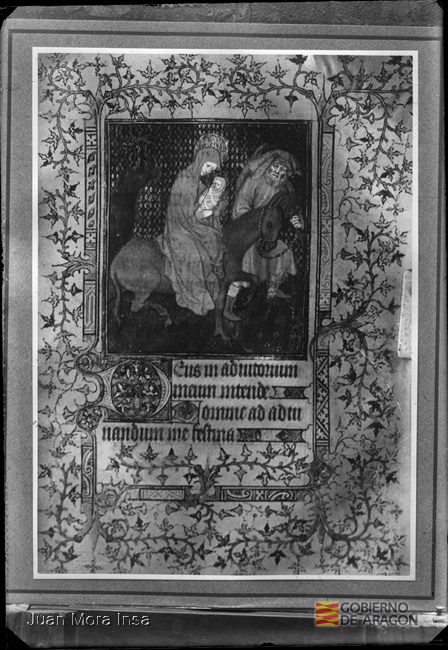 Deus in adiutorium
meum intende
Domine ad adiu
uandum me festina
Juan Mora Insa
GOBIERNO
DE ARAGON